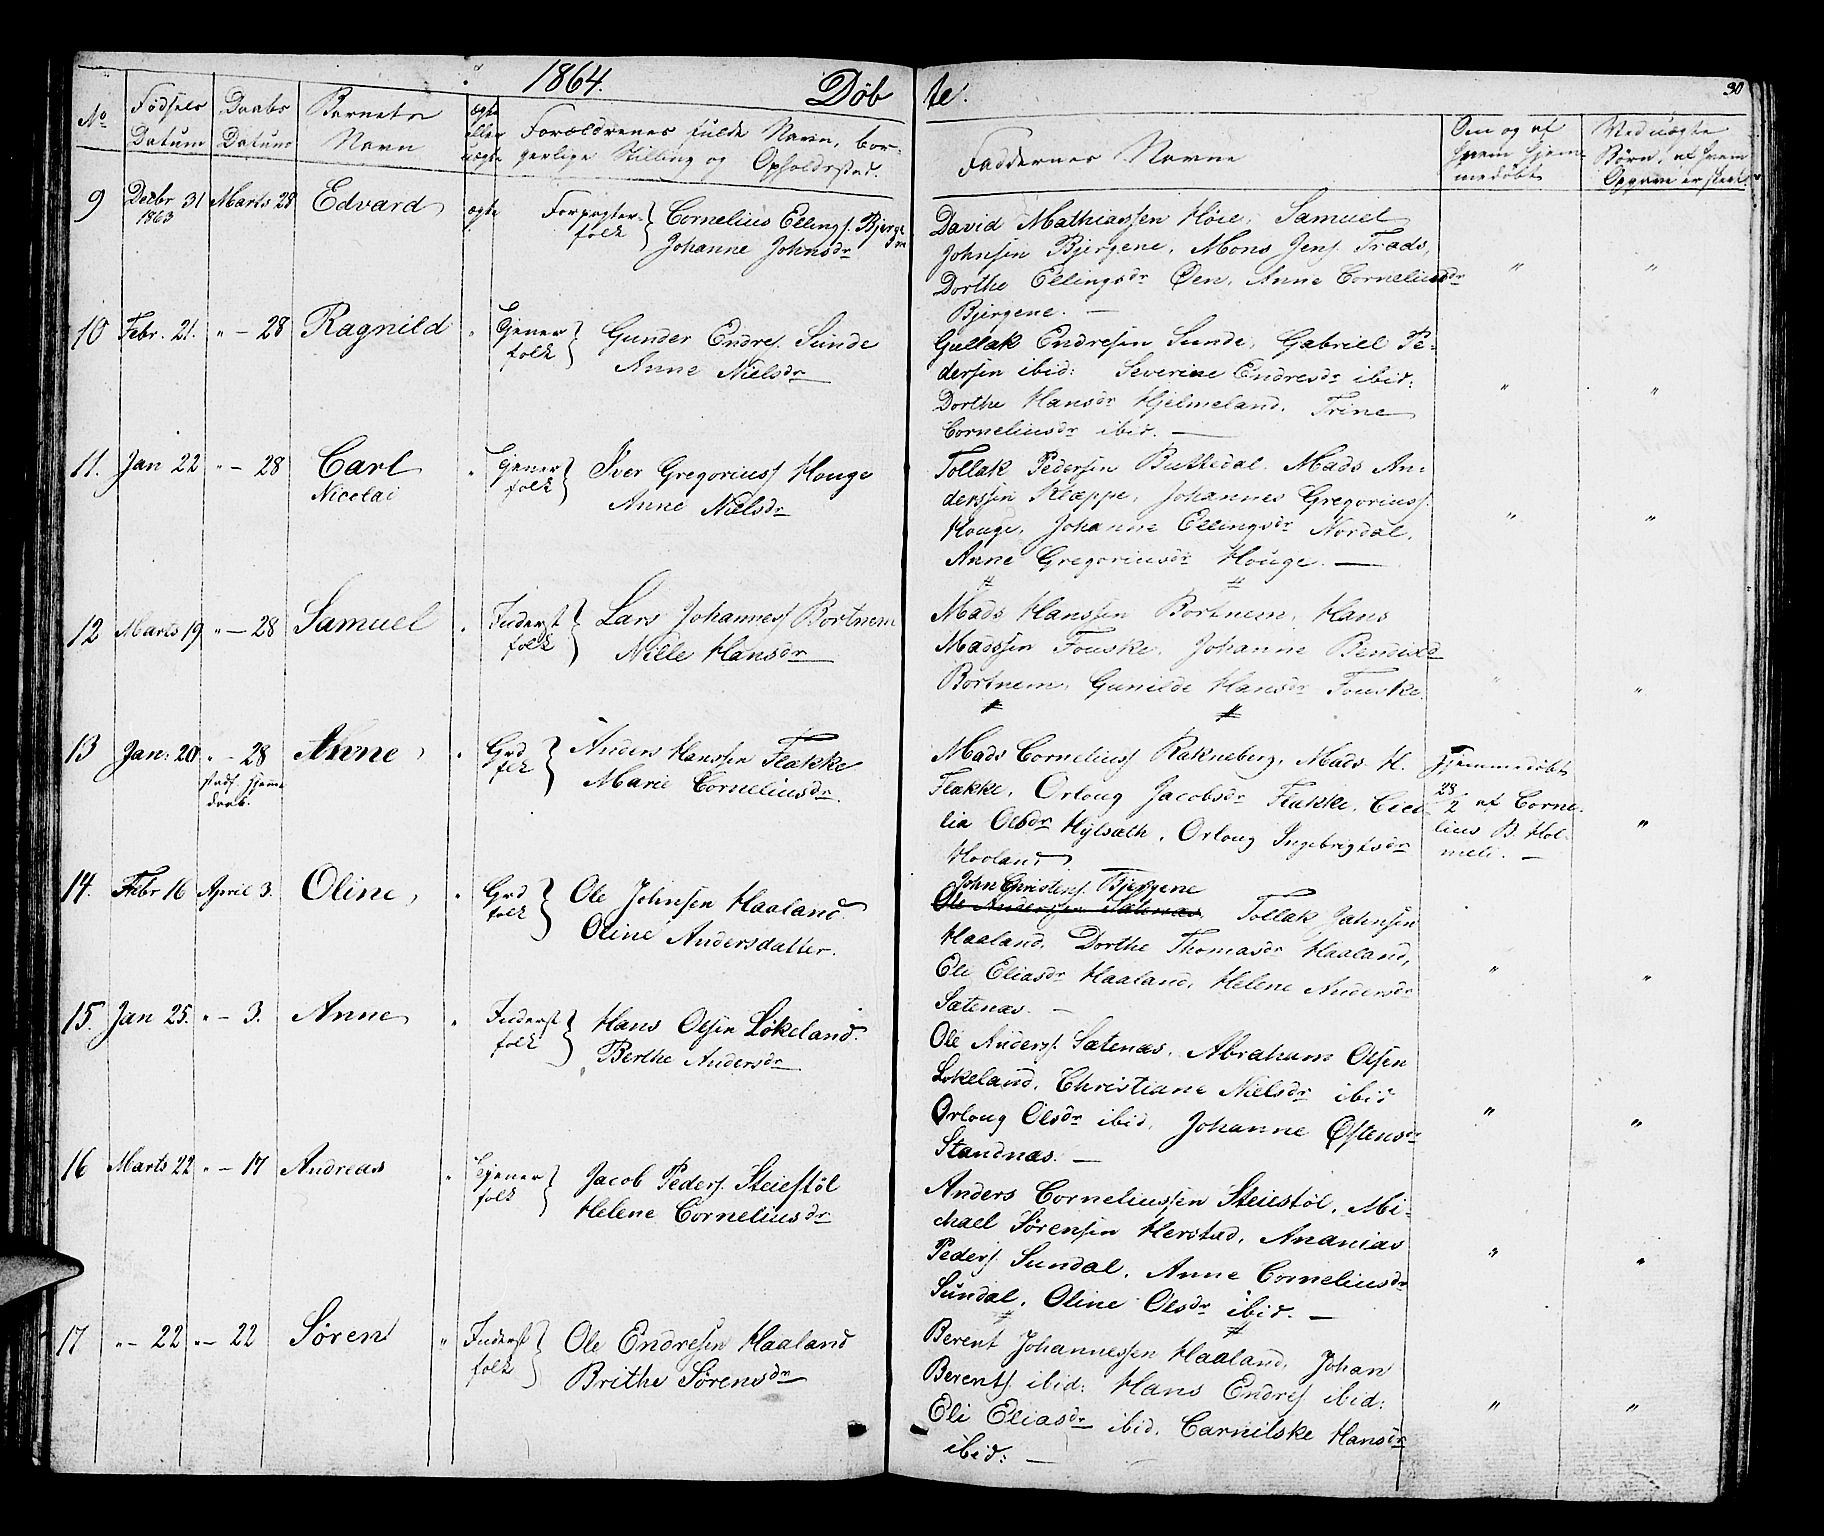 1864. Døb te. 30
No
Fødsels Datum
Daabs Datum
Barnets Navn
ægte eller uægte
Forældrenes fulde Navn, bor-
gerlige Stilling og Opholdssted.
Faddernes Navne
Om og af hvem hjem-
medøbt
Ved uægte
Børn, af hvem
Opgave er skeet.
9 Decbr 31 1863 Marts 28 Edvard ægte Forpagter-folk } Cornelius Ellings. Bjergene
Johanne Johnsdr
David Mathiassen Høie, Samuel
Johnsen Bjergene, Mons Jens. Trads,
Dorthe Ellingsdr Øen, Anne Corneliusdr
Bjergene. — " "
10 Febr. 21. " — 28 Ragnild " Tjener folk } Gunder Endres. Sunde
Anne Nielsdr
Gullak Endresen Sunde, Gabriel Pe-
dersen ibid: Severine Endresdr ibid:
Dorthe Hansdr Hjelmeland, Trine
Corneliusdr ibid. — " "
11. Jan 22 " — 28 Carl Nicolai " Tjener folk } Iver Gregoriuss. Houge
Anne Nielsdr
Tollak Pedersen Buskedal, Mads An-
derssen Klæppe, Johannes Gregoriuss.
Houge, Johanne Ellingsdr Nordal,
Anne Gregoriusdr Houge. — " "
12 Marts 19 " — 28 Samuel " Inderst folk } Lars Johanness. Bortnem
Nille Hansdr
Mads Hanssen Bortnem, Hans
Madssen Fouske, Johanne Bendixd
Bortnem, Gunilde Hansdr Fouske " "
13 Jan: 20 " — 28 stadf. hjemedaab. Anne " Grd folk } Anders Hanssen Flakke
Marie Corneliusdr.
Mads Corneliuss. Rakneberg, Mads H.
Flakke, Orloug Jacobsdr Flakke, Ceci-
lia Olsdr Hylsæth, Orloug Ingebrigtsdr
Haaland
Hjemmedøbt
28/2 af Corne-
lius B. Hol-
meli. — "
14. Febr 16 April 3. Oline " Grd folk } Ole Johnsen Haaland.
Oline Andersdatter.
John Christens. Bjergene
Ole Andersen Sætenæs, Tollak Johnsen
Haaland, Dorthe Thomasdr Haaland,
Eli Eliasdr Haaland, Helene Andersdr
Sætenæs. — " "
15. Jan 25. " — 3. Anne " Inderst folk } Hans Olsen Løkeland.
Berthe Andersdr
Ole Anders. Sætenæs, Abraham Olsen
Løkeland, Christiane Nielsdr ibid
Orloug Olsdr ibid, Johanne Østensdr
Standnæs. — " "
16 Marts 22 " — 17 Andreas " Tjener folk } Jacob Peders. Steiestøl
Helene Corneliusdr
Anders Corneliussen Steiestøl, Mi-
chael Sørensen Herstad, Ananias
Peders. Sundal, Anne Corneliusdr
Sundal, Oline Olsdr ibid. — " "
17 " — 22 " — 22 Søren " Inderst folk } Ole Endresen Haaland
Brithe Sørensdr
Berent Johannessen Haaland, Johan
Berents. ibid: Hans Endres. ibid:
Eli Eliasdr ibid, Carnilske Hansdr
ibid: — " "